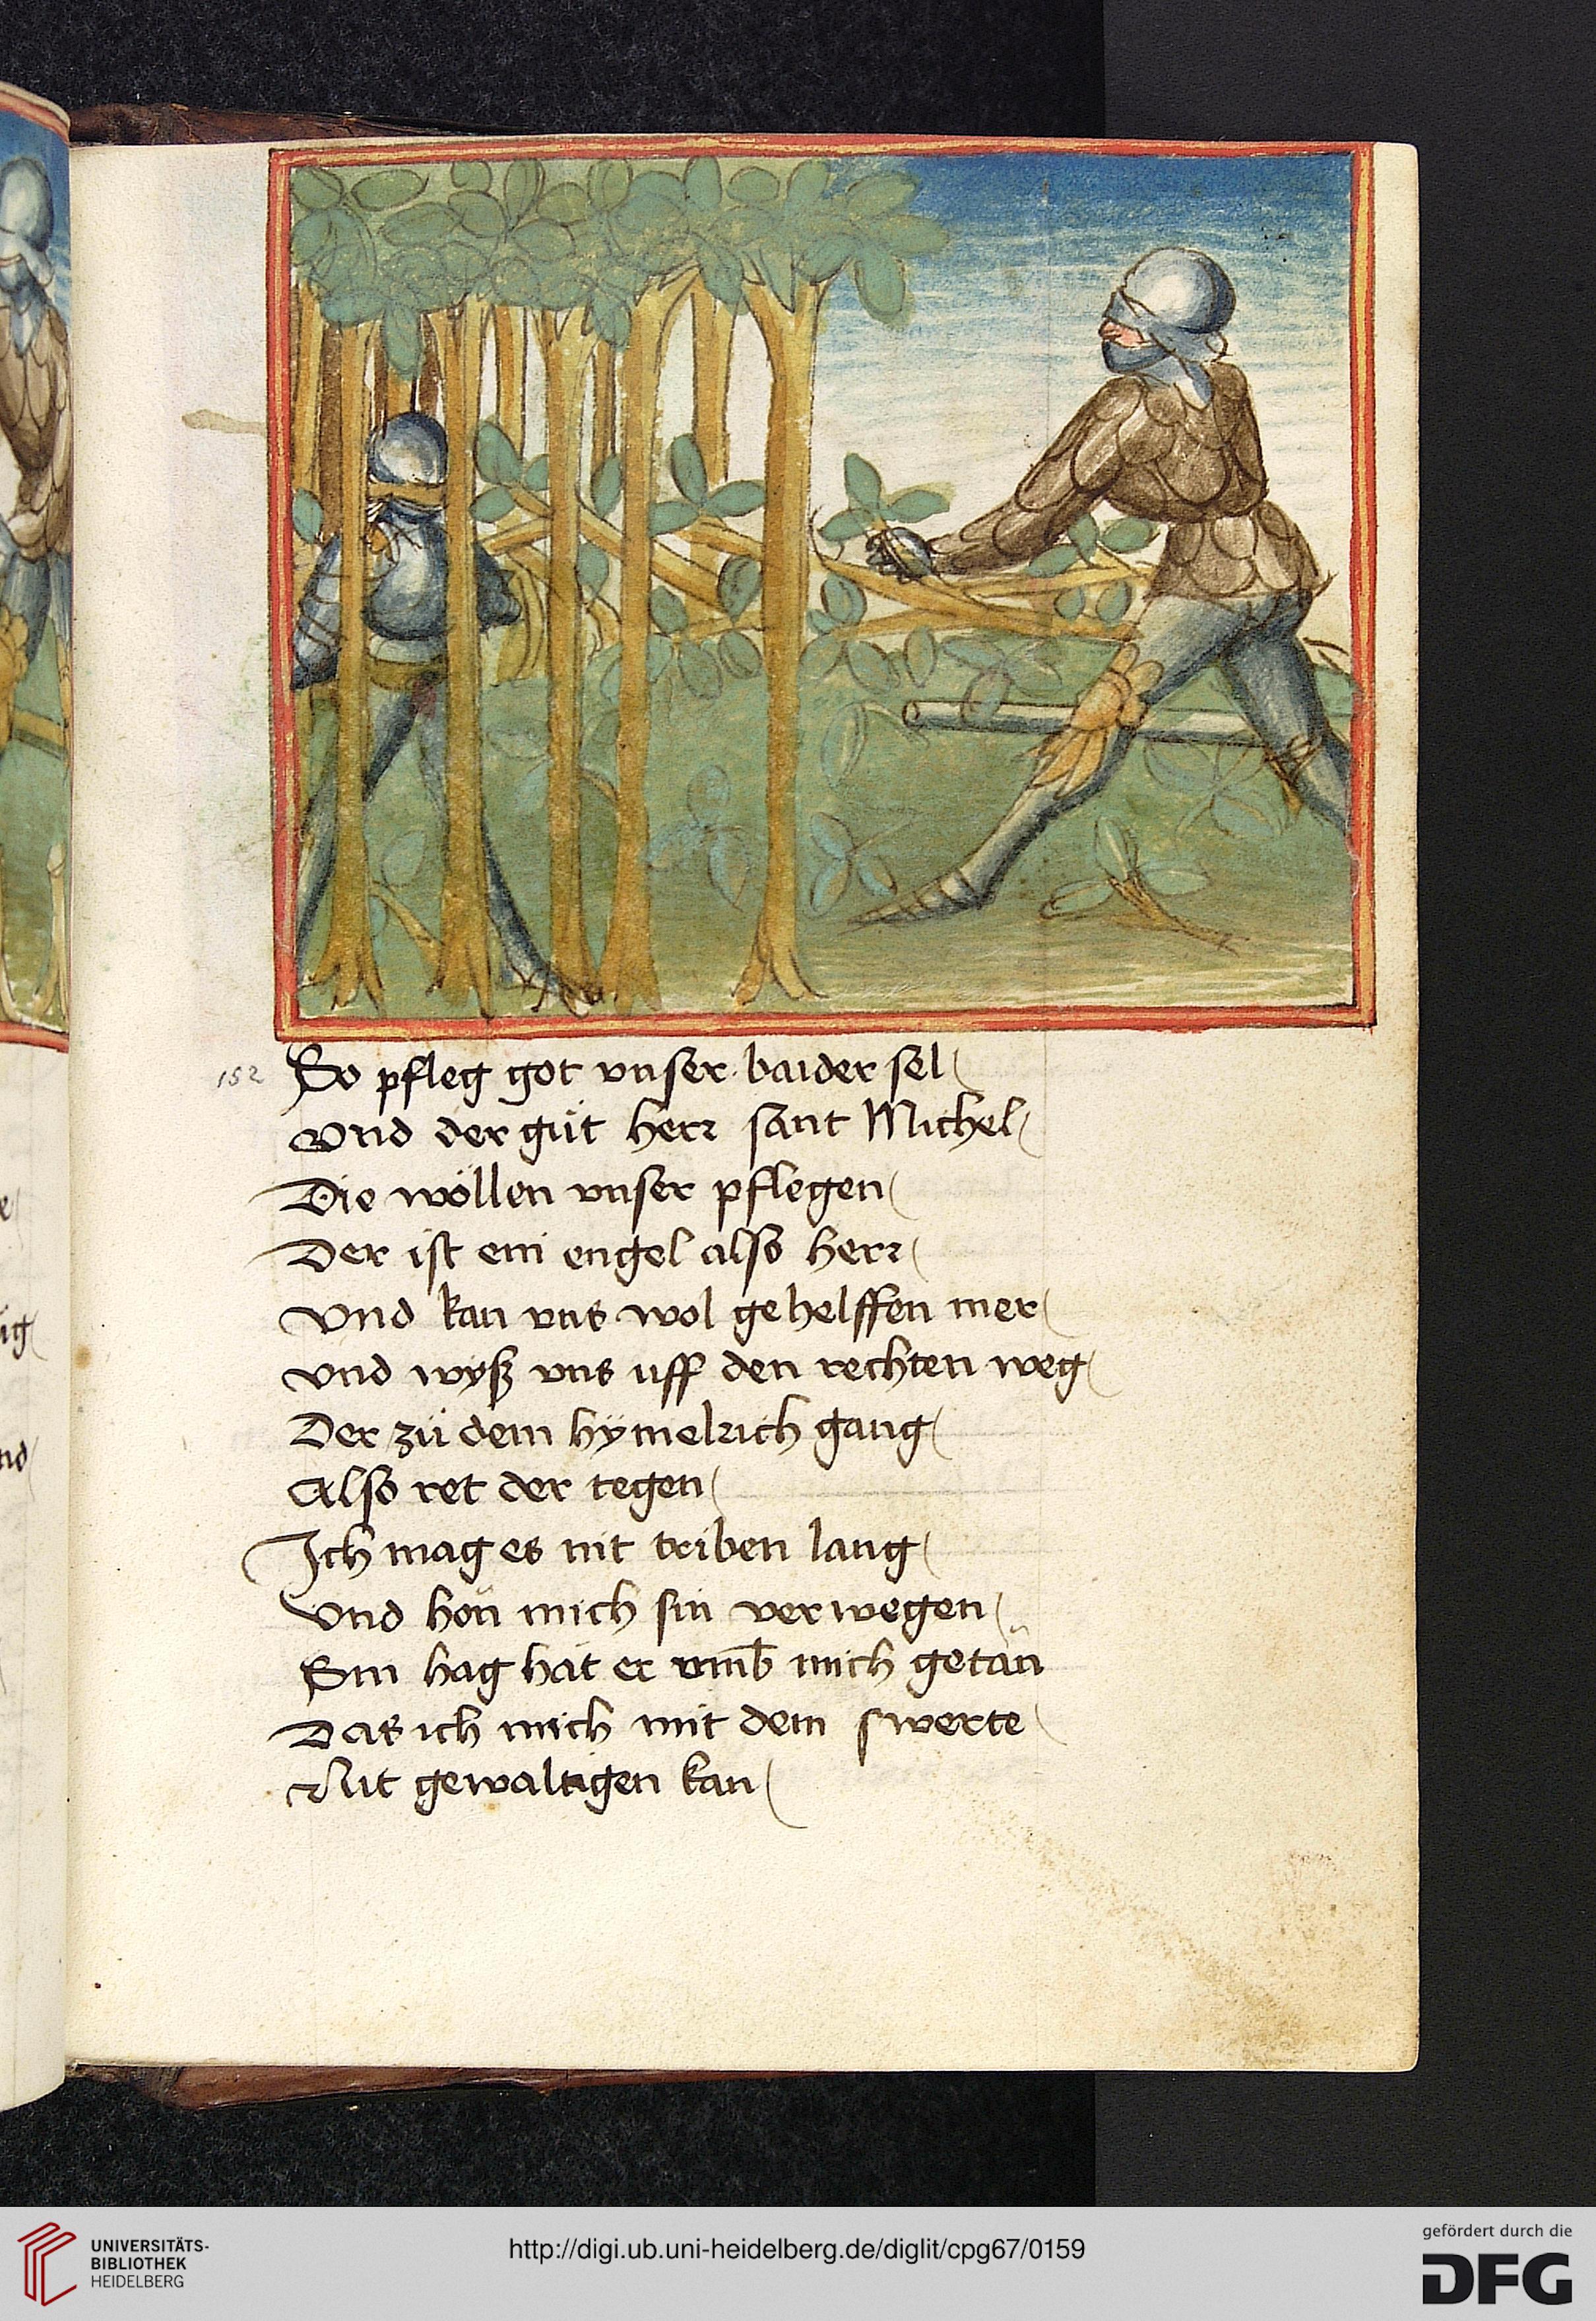 152 So pfleg got vnser baider sel
Vnd der gůt herr sant Michel
Die wöllen vnser pflegen
Der ist ein engel also herr
Vnd kan vns wol gehelffen mer
vnd wyß vns uff den rechten weg
Der zů dem hÿmelrich gang
Also ret der tegen
Ich mag es nit triben lang
Vnd hon mich sin verwegen
Sin hag hät er vmb mich getän
Das ich mich mit dem swerte
Nit gewaltigen kan
UNIVERSITÄTS-
BIBLIOTHEK
HEIDELBERG
http://digi.ub.uni-heidelberg.de/diglit/cpg67/0159
gefördert durch die
DFG